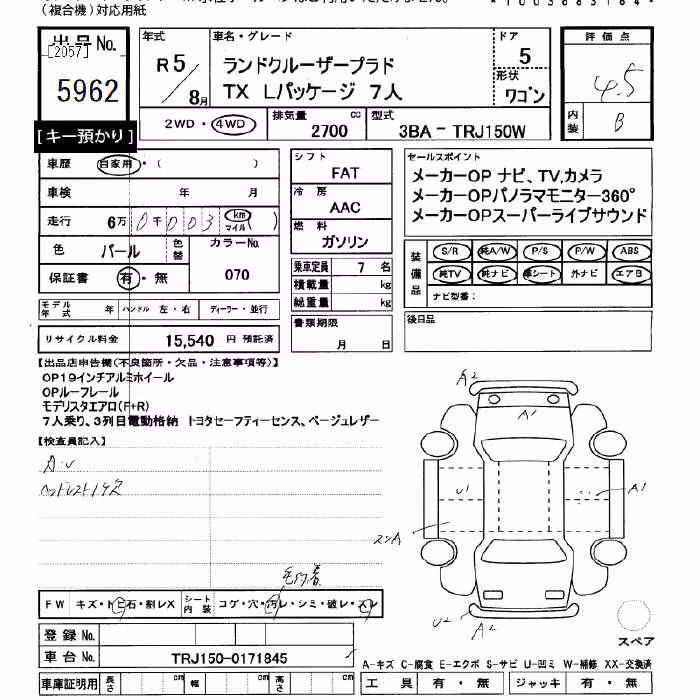 (複合機)対応用紙
出品No.
[2057]
5962
【キー預かり】
年式
R5/8月
車名・グレード
ランドクルーザープラド
TX Lパッケージ 7人
ドア
5
形状
ワゴン
評価点
4.5
内装
B
2WD・4WD
排気量 2700 cc
型式 3BA - TRJ150W
車歴 自家用・( )
車検 年 月
走行 6万 0千003 km マイル ( )
色 パール 色替
カラーNo. 070
保証書 有・無
シフト
FAT
冷房
AAC
燃料
ガソリン
乗車定員 7 名
積載量 kg
総重量 kg
セールスポイント
メーカーOP ナビ、TV,カメラ
メーカーOPパノラマモニター360°
メーカーOPスーパーライブサウンド
装備品
S/R 純A/W P/S P/W ABS
純TV 純ナビ 革シート 外ナビ エアB
ナビ型番:
モデル年式 年 ハンドル 左・右 ディーラー・並行
リサイクル料金 15,540 円 預託済
書類期限
月 日
後日品
【出品店申告欄(不良箇所・欠品・注意事項等)】
OP19インチアルミホイール
OPルーフレール
モデリスタエアロ(F+R)
7人乗り、3列目電動格納 トヨタセーフティーセンス、ベージュレザー
【検査員記入】
A2
A1
U1
A1
U2
A2
FW キズ・トビ石・割レX
シート内装 コゲ・穴・汚レ・シミ・破レ・スレ
登録No.
車台No. TRJ150-0171845
車庫証明用 長さ cm 幅 cm 高さ cm
スペア
A-キズ C-腐食 E-エクボ S-サビ U-凹ミ W-補修 XX-交換済
工具 有・無 ジャッキ 有・無